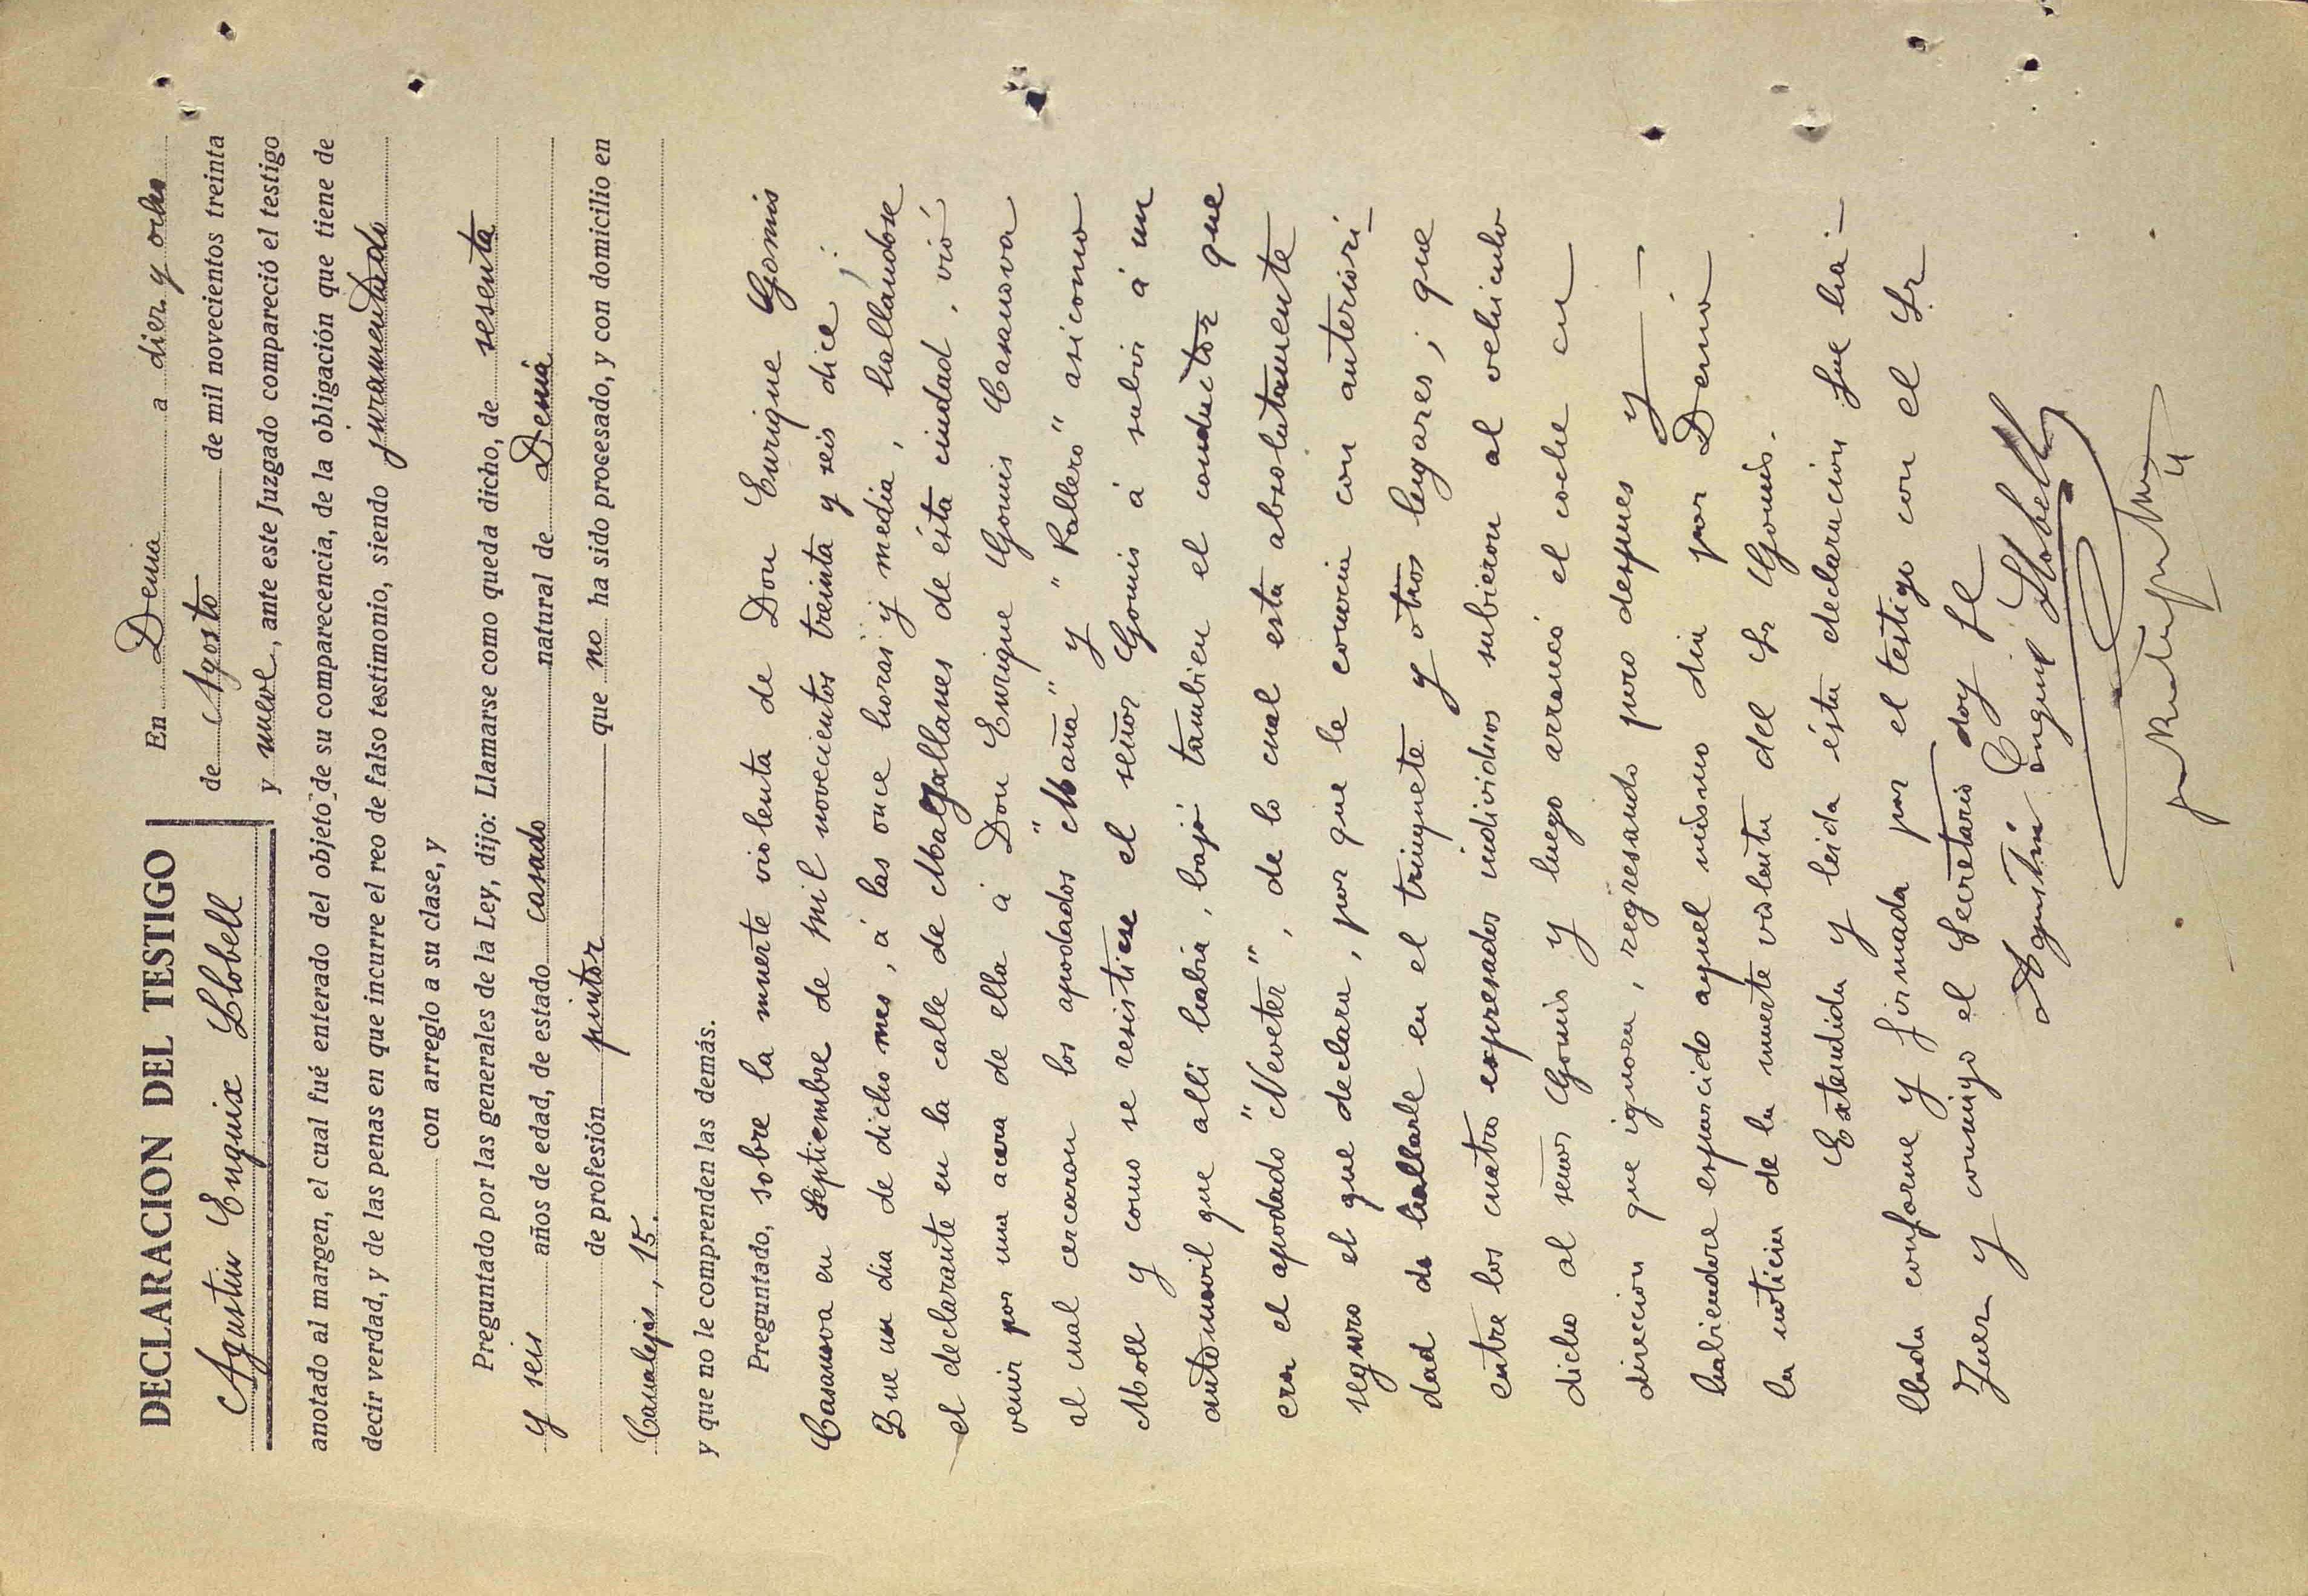 DECLARACION DEL TESTIGO
Agustin Enguix Llobell
En Denia a diez y ocho
de Agosto de mil novecientos treinta
y nueve, ante este Juzgado compareció el testigo
anotado al margen, el cual fué enterado del objeto de su comparecencia, de la obligación que tiene de
decir verdad, y de las penas en que incurre el reo de falso testimonio, siendo juramentado
con arreglo a su clase, y
Preguntado por las generales de la Ley, dijo: Llamarse como queda dicho, de sesenta
y seis años de edad, de estado casado natural de Denia
de profesión pintor que no ha sido procesado, y con domicilio en
Canalejas, 15.
y que no le comprenden las demás.
Preguntado, sobre la muerte violenta de Don Enrique Gomis
Casanova en Septiembre de mil novecientos treinta y seis dice;
Que un dia de dicho mes, á las once horas y media, hallandose
el declarante en la calle de Magallanes de ésta ciudad, vió
venir por una acera de ella á Don Enrique Gomis Casanova
al cual cercaron los apodados "Maña" y "Rallero" asicomo
Moll y como se resistiese el señor Gomis á subir á un
automovil que alli habia, bajó tambien el conductor que
era el apodado "Neveter", de lo cual esta absolutamente
seguro el que declara, por que le conocia con anteriori-
dad de hallarle en el trinquete y otros lugares; que
entre los cuatro expresados individuos subieron al vehiculo
dicho al señor Gomis y luego arrancó el coche en
direccion que ignora, regresando poco despues y
habiendose esparcido aquel mismo dia por Denia
la noticia de la muerte violenta del Sr Gomis.
Extendida y leida ésta declaracion fue ha-
llada conforme y firmada por el testigo con el Sr
Juez y conmigo el Secretario doy fe
Agustin Enguix Llobell